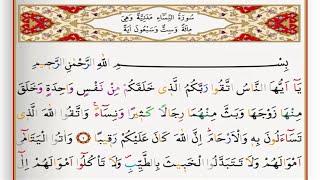 سُورَةُ النِّسَاءِ مَدَنِيَّةٌ وَهِيَ
مِائَةٌ وَسِتٌّ وَسَبْعُونَ اٰيَةً
بِسْــــــمِ اللّٰهِ الرَّحْمٰنِ الرَّحِيمِ
يَٓا اَيُّهَا النَّاسُ اتَّقُوا رَبَّكُمُ الَّذ۪ي خَلَقَكُمْ مِنْ نَفْسٍ وَاحِدَةٍ وَخَلَقَ
مِنْهَا زَوْجَهَا وَبَثَّ مِنْهُمَا رِجَالًا كَث۪يرًا وَنِسَٓاءًۚ وَاتَّقُوا اللّٰهَ الَّذ۪ي
تَسَٓاءَلُونَ بِه۪ وَالْاَرْحَامَۜ اِنَّ اللّٰهَ كَانَ عَلَيْكُمْ رَق۪يبًا ﴿١﴾ وَاٰتُوا الْيَتَامٰٓى
اَمْوَالَهُمْ وَلَا تَتَبَدَّلُوا الْخَب۪يثَ بِالطَّيِّبِۖ وَلَا تَأْكُلُٓوا اَمْوَالَهُمْ اِلٰٓى